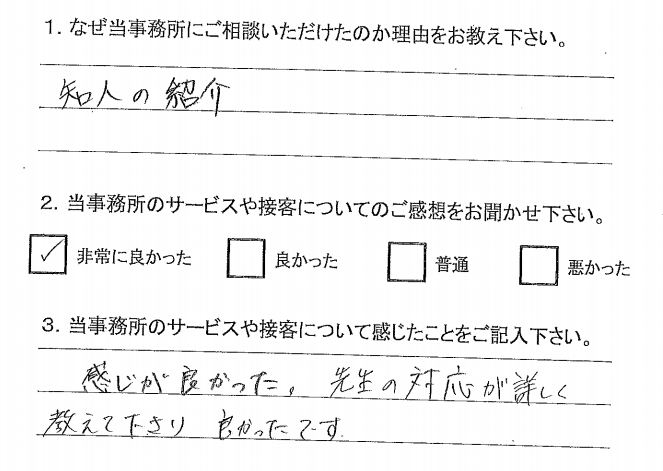 1. なぜ当事務所にご相談いただけたのか理由をお教え下さい。
知人の紹介
2. 当事務所のサービスや接客についてのご感想をお聞かせ下さい。
✓ 非常に良かった 良かった 普通 悪かった
3. 当事務所のサービスや接客について感じたことをご記入下さい。
感じが良かった。先生の対応が詳しく
教えて下さり 良かったです。